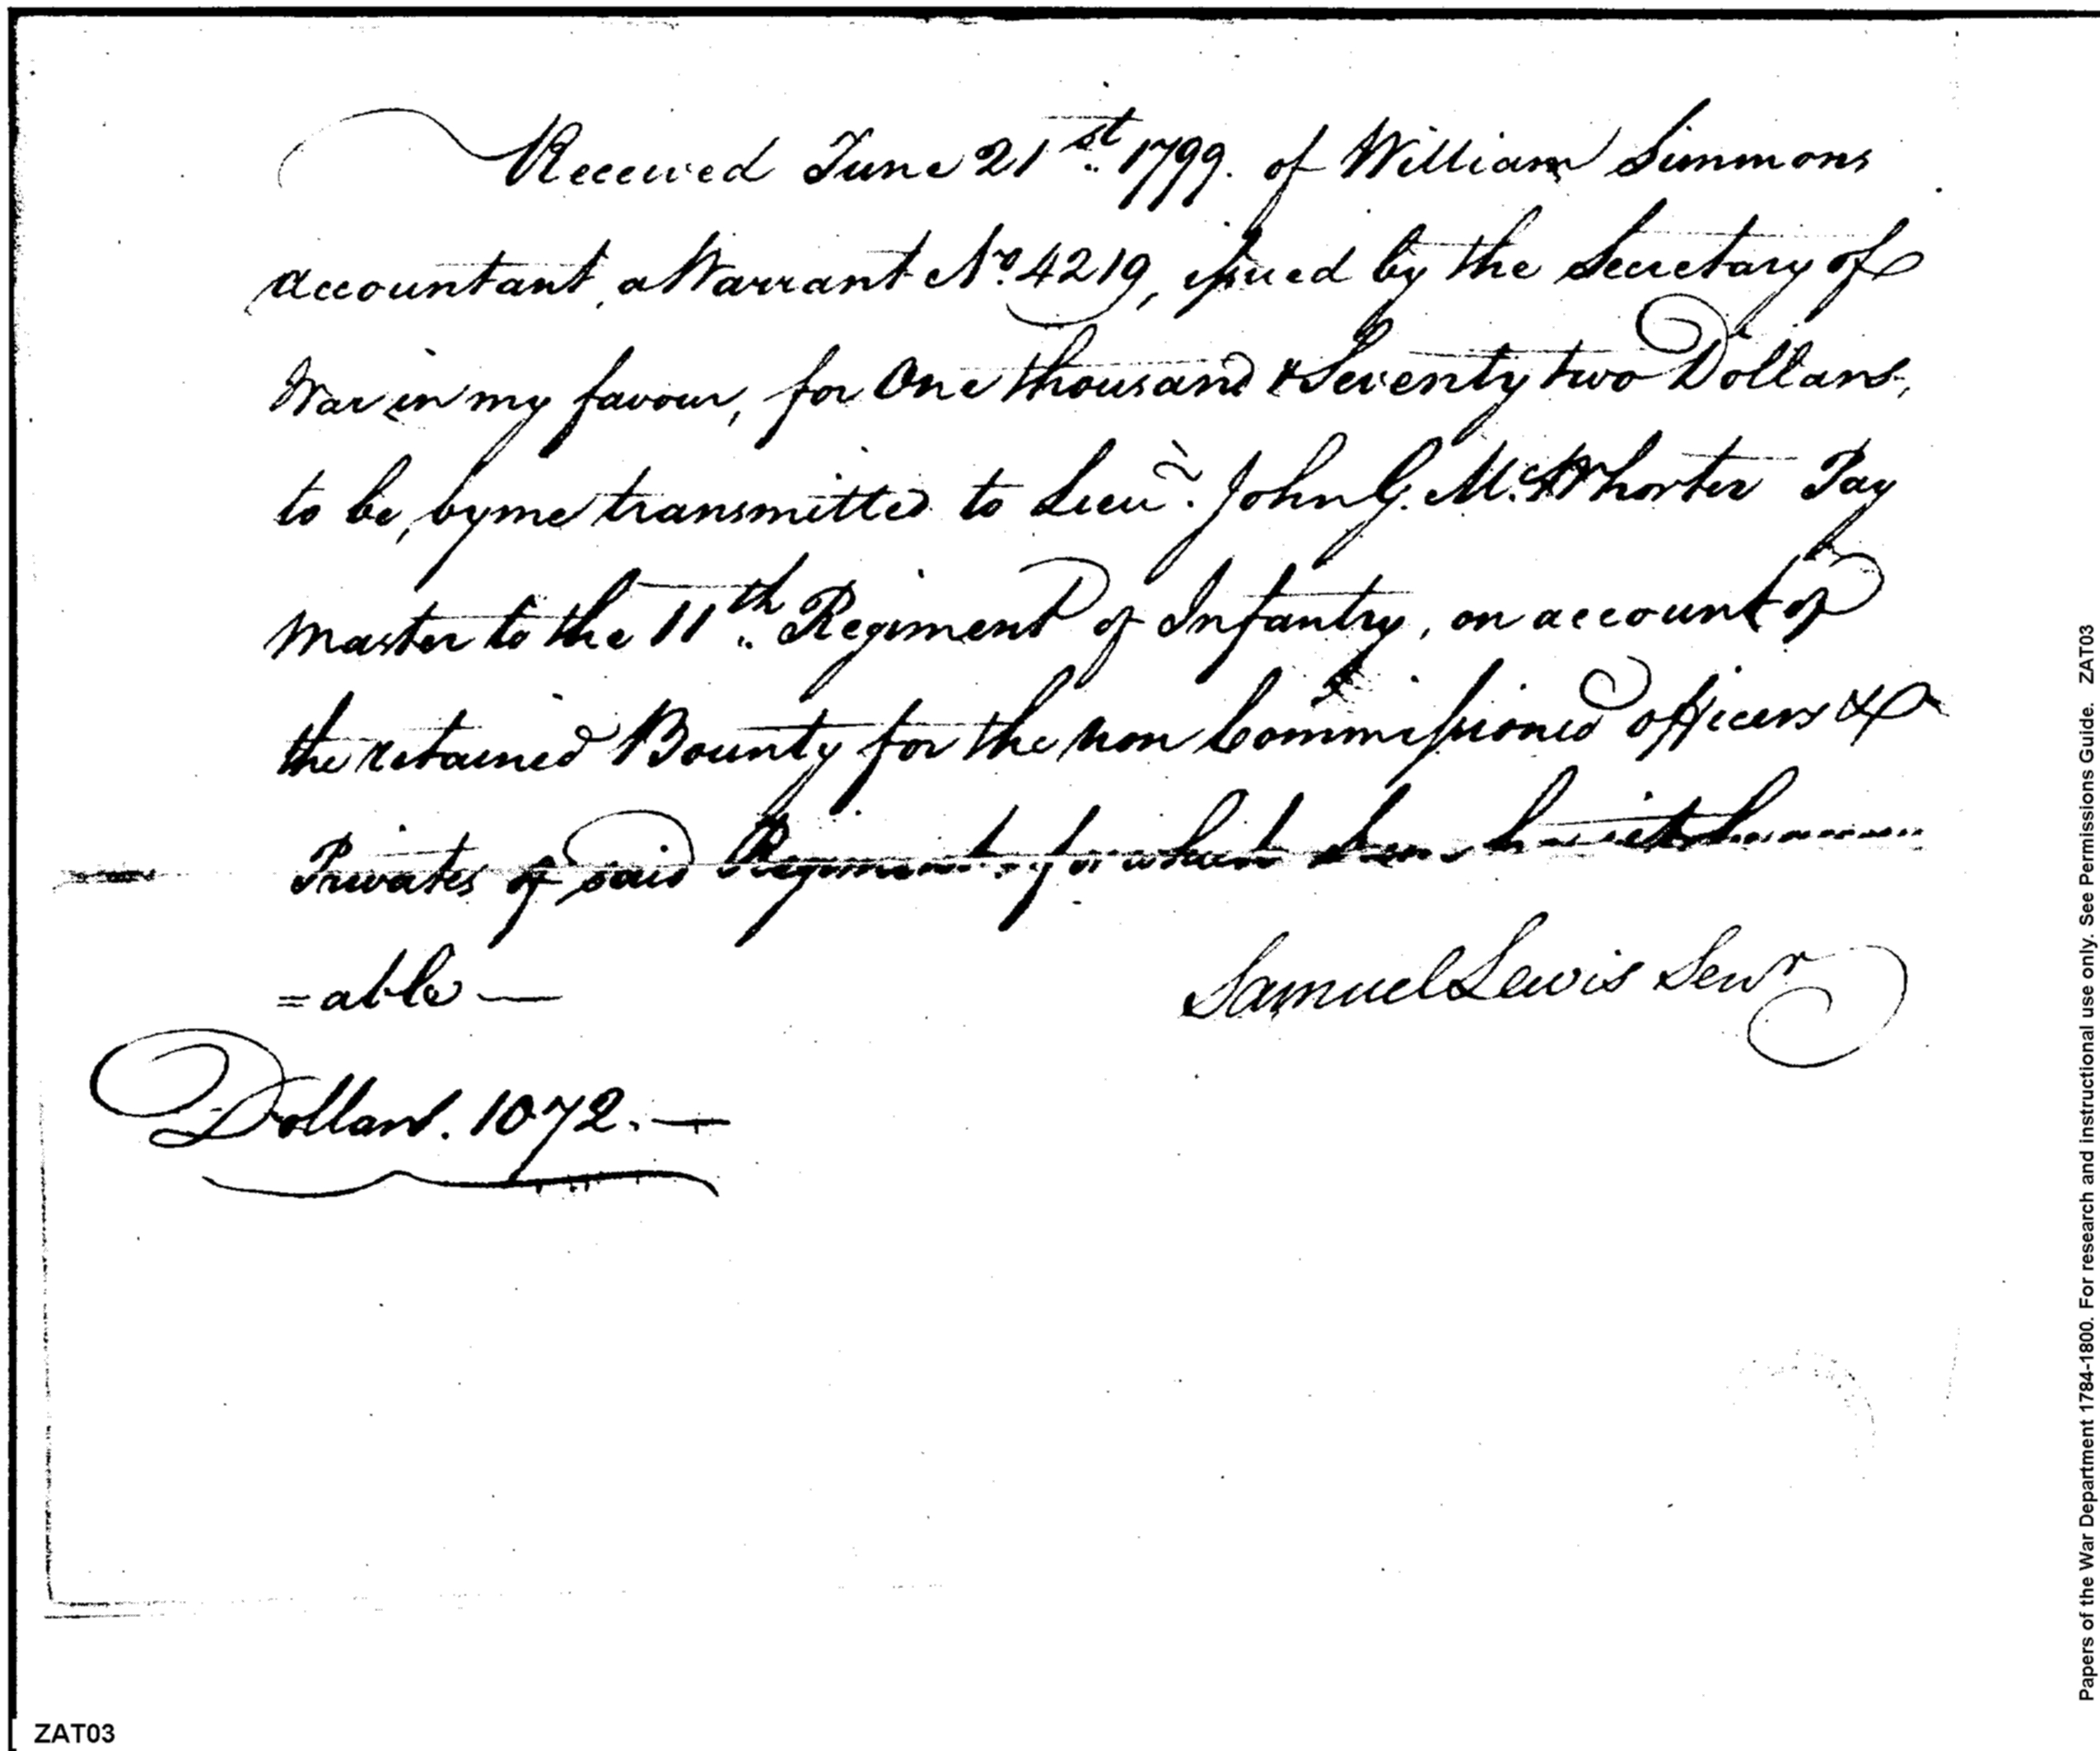 Received June 21st. 1799. of William Simmons
accountant, a Warrant No. 4219, issued by the Secretary of
War in my favour, for One thousand & Seventy two Dollars,
to be, by me transmitted to Lieut. John G. Mc.Whorter Pay
master to the 11th. Regiment of Infantry, on account of
the retained Bounty for the non Commissioned officers &
Privates of said Regiment, for which
=able —
Samuel Lewis Senr
Dollars. 1072. —
Papers of the War Department 1784-1800. For research and instructional use only. See Permissions Guide. ZAT03
ZAT03